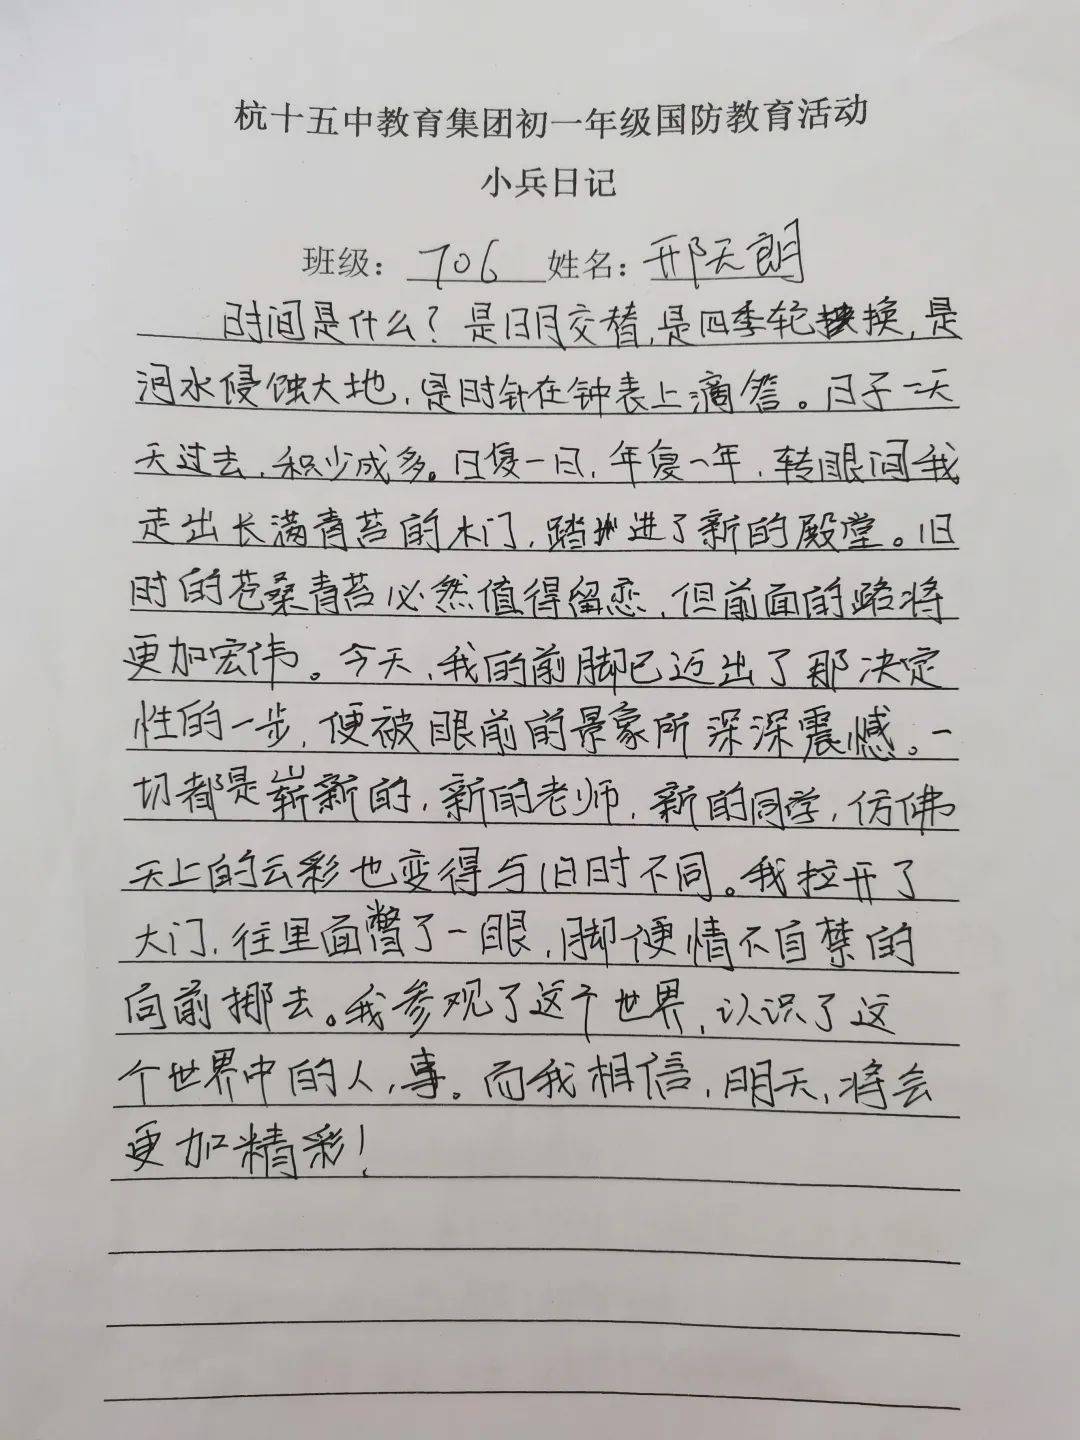 杭十五中教育集团初一年级国防教育活动
小兵日记
班级：706 姓名：邢天朗
时间是什么？是日月交替，是四季轮换，是
河水侵蚀大地，是时针在钟表上滴答。日子一天
天过去，积少成多。日复一日，年复一年，转眼间我
走出长满青苔的木门，踏进了新的殿堂。旧
时的苍桑青苔必然值得留恋，但前面的路将
更加宏伟。今天，我的前脚已迈出了那决定
性的一步，便被眼前的景象所深深震憾。一
切都是崭新的，新的老师，新的同学，仿佛
天上的云彩也变得与旧时不同。我拉开了
大门，往里面瞥了一眼，脚便情不自禁的
向前挪去。我参观了这个世界，认识了这
个世界中的人，事。而我相信，明天，将会
更加精彩！